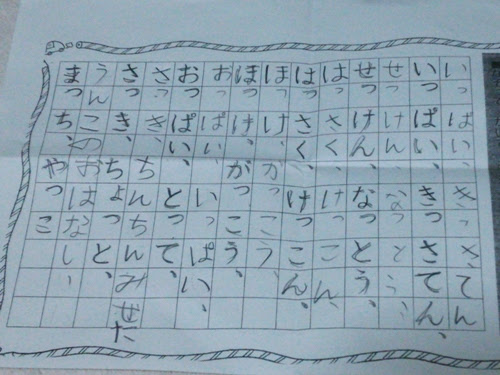 いっぱい、きっさてん
いっぱい、きっさてん、
せっけん、なっとう、
せっけん、なっとう、
はっさく、けっこん、
はっさく、けっこん、
ほっけ、がっこう
ほっけ、がっこう、
おっぱい、いっぱい、
おっぱい、とって、
さっき、ちんちんみせた
さっき、ちょっと、
うんこのおはなしー
まっち、やっこ